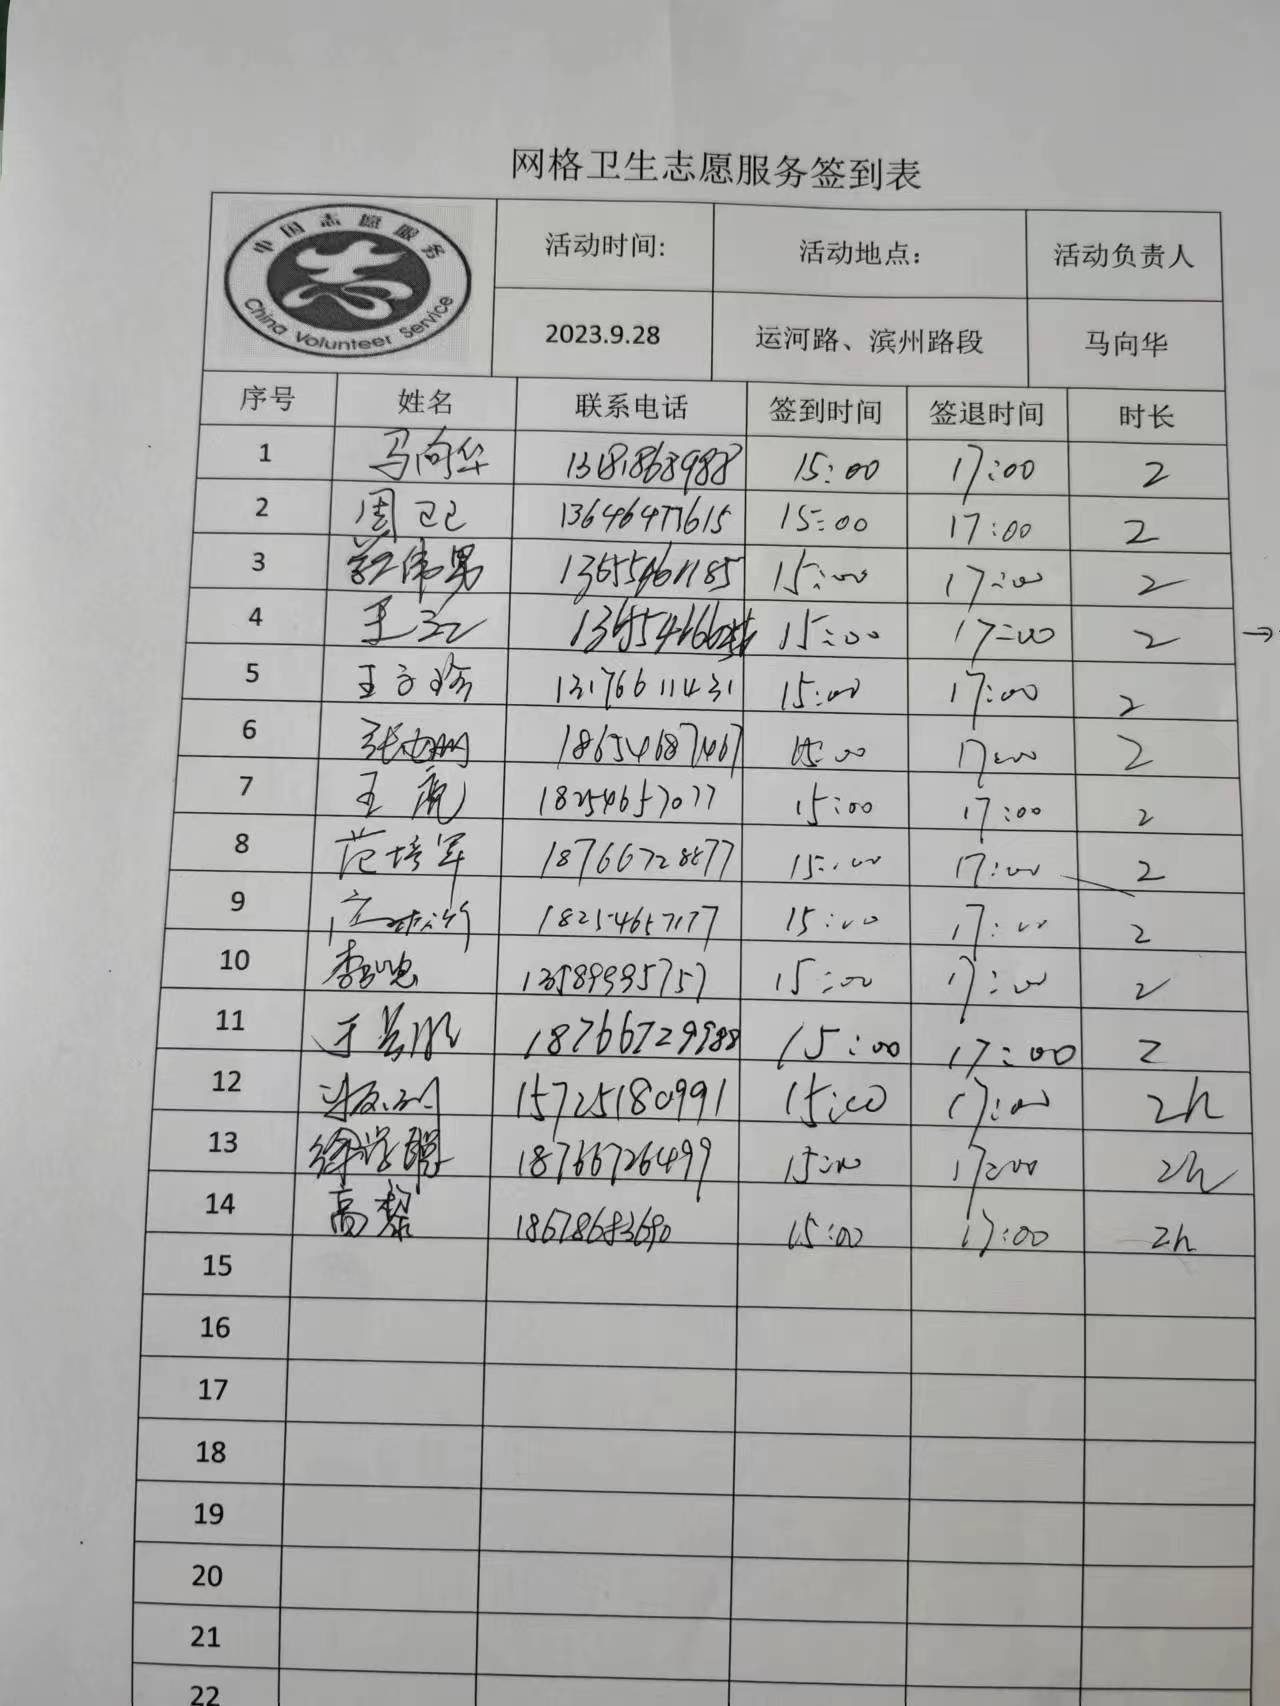 网格卫生志愿服务签到表
中国志愿服务
China Volunteer Service
活动时间: 活动地点: 活动负责人
2023.9.28 运河路、滨州路段 马向华
序号 姓名 联系电话 签到时间 签退时间 时长
1 马向华 13181868988 15:00 17:00 2
2 周卫己 13646477615 15:00 17:00 2
3 伟男 15:00 17:00 2
4 15:00 17:00 2
5 王 13176611431 15:00 17:00 2
6 张 18654687467 15:00 17:00 2
7 王虎 18254657077 15:00 17:00 2
8 范培军 18766728877 15:00 17:00 2
9 18254657177 15:00 17:00 2
10 李 13589995757 15:00 17:00 2
11 于 18766729988 15:00 17:00 2
12 15725180991 15:00 17:00 2h
13 徐学 18766726499 15:00 17:00 2h
14 高黎 18678683690 15:00 17:00 2h
15
16
17
18
19
20
21
22